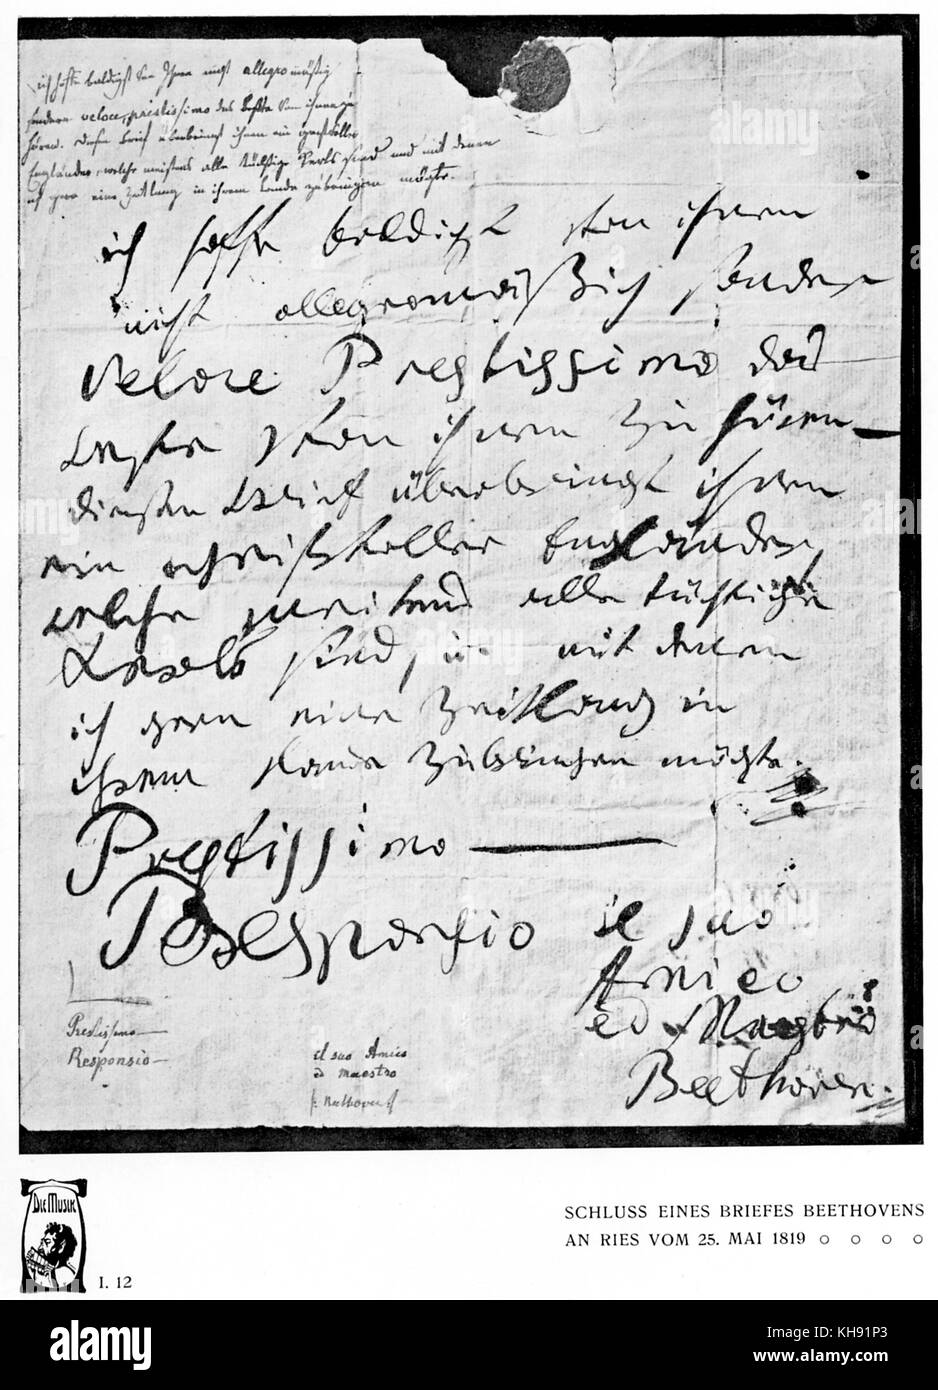 ich hoffe baldigst von Ihnen nicht allegromäßig
sondern veloce, prestissimo das Beste von ihnen zu
hören. Diesen Brief überbringt ihnen ein geistvoller
Engländer, welche meistens alle tüchtige Kerls sind und mit denen
ich gern eine Zeitlang in ihrem Lande zubringen möchte.
ich hoffe baldigst von ihnen
nicht allegromäßig sondern
veloce Prestissimo das
beste von ihnen zu hören —
diesen brief überbringt ihnen
ein Engländer,
welche meistens alle tüchtige
Kerls sind, u. mit denen
ich gern eine Zeitlang in
ihrem Lande zubringen möchte.
Prestissimo —
Responsio il suo
Amico
ed Maestro
Beethoven
Prestissimo —
Responsio —
il suo Amico
ed maestro
Beethoven
DIE MUSIK
I. 12
SCHLUSS EINES BRIEFES BEETHOVENS
AN RIES VOM 25. MAI 1819 ○ ○ ○ ○
alamy
Image ID: KH91P3
www.alamy.com